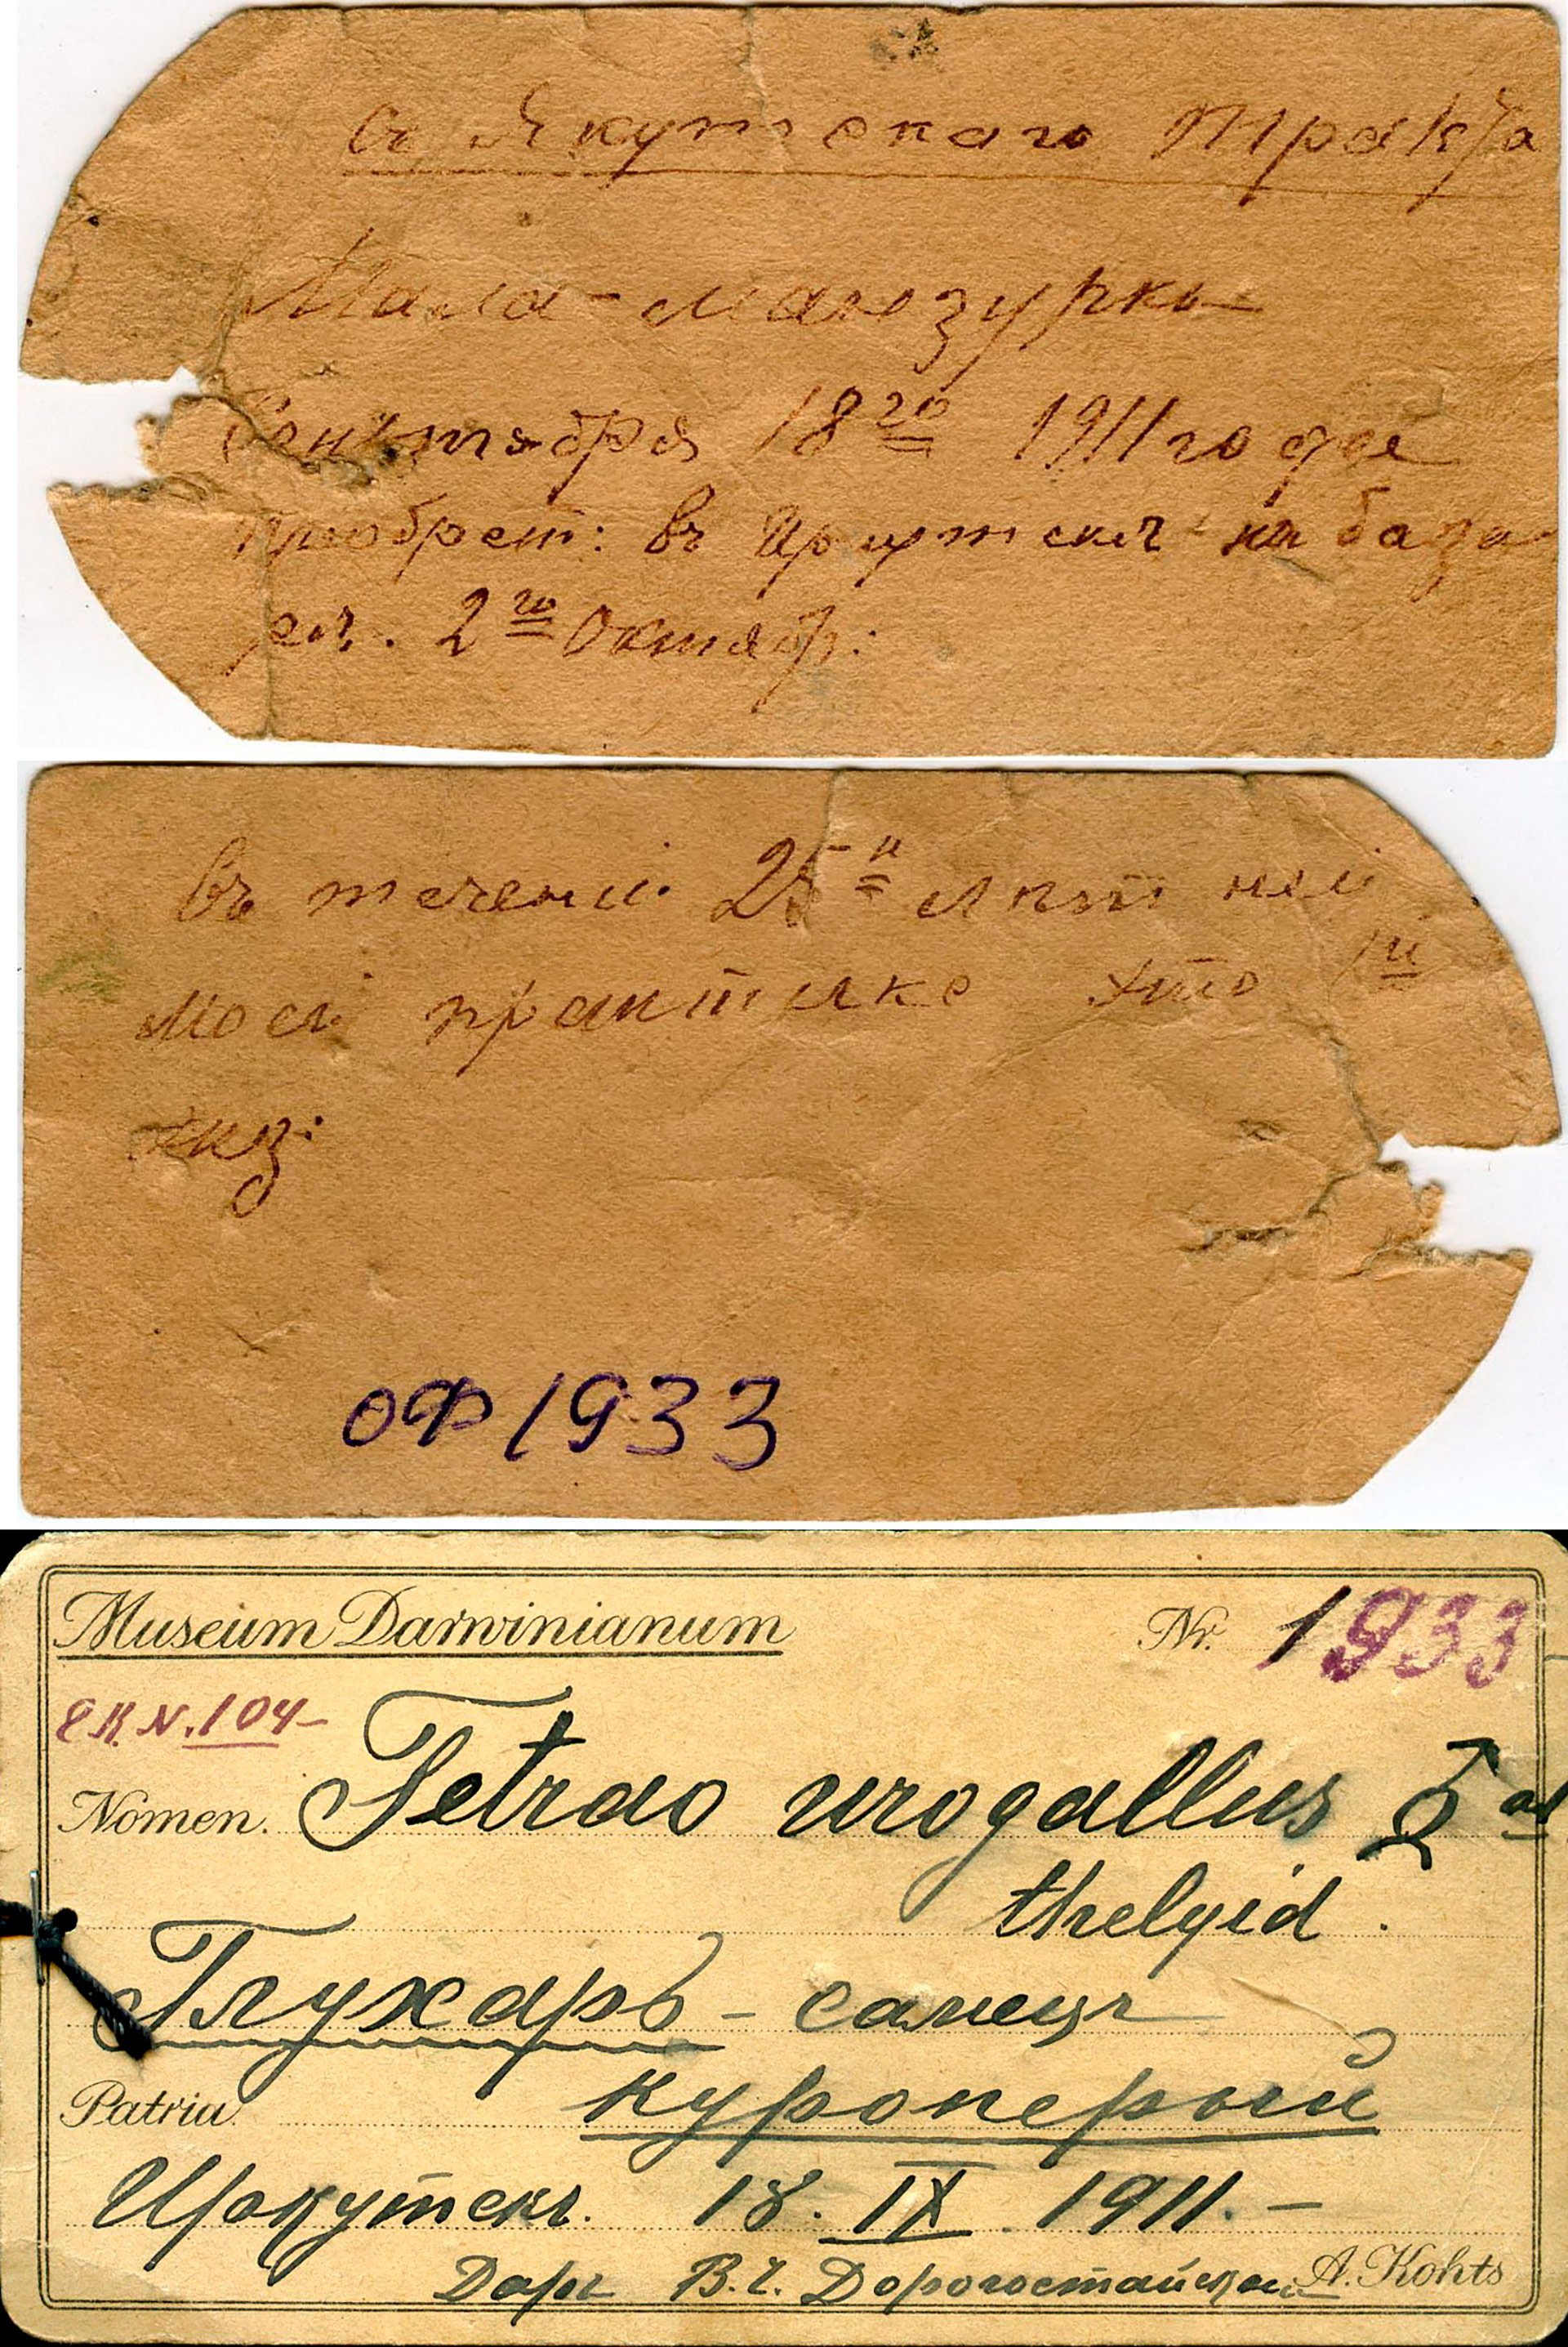 съ Якутскаго Тракта
Мала-Манзурка
Сентября 18го 1911 года
приобрет: въ Иркутскѣ на база
рѣ. 2го Октябр:
въ течени 25и лѣт
моей практике это 1й
экз:
ОФ 1933
Museum Darwinianum
Nr. 1933
E K. N. 104-
Nomen. Tetrao urogallus ♂ ad
thelyid.
Глухарь - самецъ
Patria куроперый
Иркутскъ. 18. IX. 1911. -
Даръ В. Ч. Дорогостайскаго A. Kohts